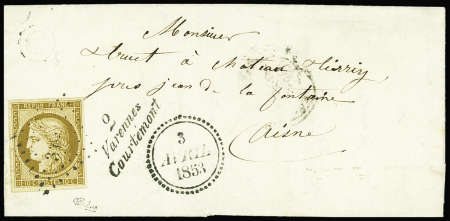 Monsieur
truet à Chateau Thierry
près jean de la fontaine
Aisne
REPUB. FRANC.
10 C. 10 C.
2
Varennes
Courtemont
3
AVRIL
1853